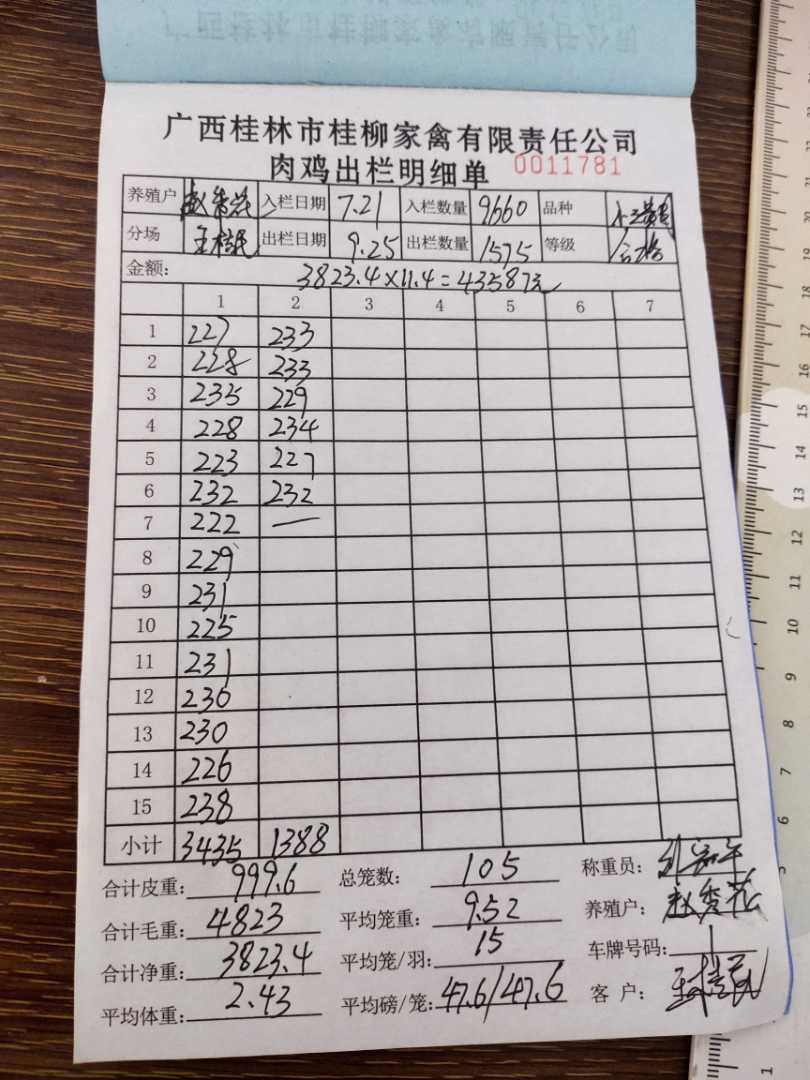 广西桂林市桂柳家禽有限责任公司
肉鸡出栏明细单 0011781
养殖户 赵秀花 入栏日期 7.21 入栏数量 9660 品种
分场 出栏日期 9.25 出栏数量 1575 等级 合格
金额: 3823.4×11.4=43587元
1 2 3 4 5 6 7
1 227 233
2 228 233
3 235 229
4 228 234
5 223 227
6 232 232
7 222 —
8 229
9 231
10 225
11 231
12 230
13 230
14 226
15 238
小计 3435 1388
合计皮重: 999.6 总笼数: 105 称重员:
合计毛重: 4823 平均笼重: 9.52 养殖户: 赵秀花
合计净重: 3823.4 平均笼/羽: 15 车牌号码: 1
平均体重: 2.43 平均磅/笼: 47.6/47.6 客户: